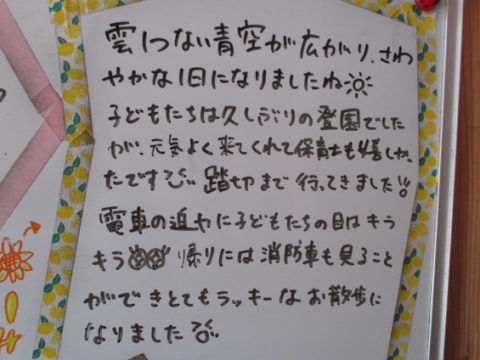 雲1つない青空が広がり、さわ
やかな1日になりましたね
子どもたちは久しぶりの登園でした
が、元気よく来てくれて保育士も嬉しかっ
たです 踏切まで行ってきました!!
電車の迫力に子どもたちの目はキラ
キラ 帰りには消防車も見ること
ができとてもラッキーなお散歩に
なりました